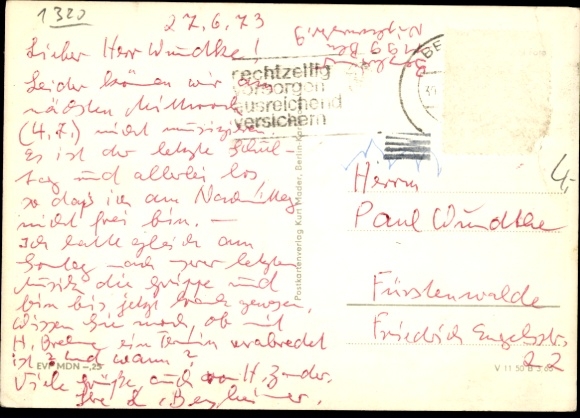 1320
27.6.73
Lieber Herr Wundtke!
Leider können wir am
nächsten Mittwoch
(4.7.) nicht musizieren
Es ist der letzte Schul-
tag und allerlei los
so daß ich am Nachmittag
nicht frei bin. –
Ich hatte gleich am
Sonntag nach der letzten
Musik die Grippe und
bin bis jetzt krank gewesen.
Wissen Sie noch, ob mit
H. ein Termin verabredet
ist? und wann?
Viele Grüße, auch von H. Zander.
Ihre
rechtzeitig
vorsorgen
ausreichend
versichern
BE
Postkartenverlag Kurt Mader, Berlin
4,-
Herrn
Paul Wundtke
Fürstenwalde
Friedrich Engelsstr.
22
EVP MDN -,25
V 11 50